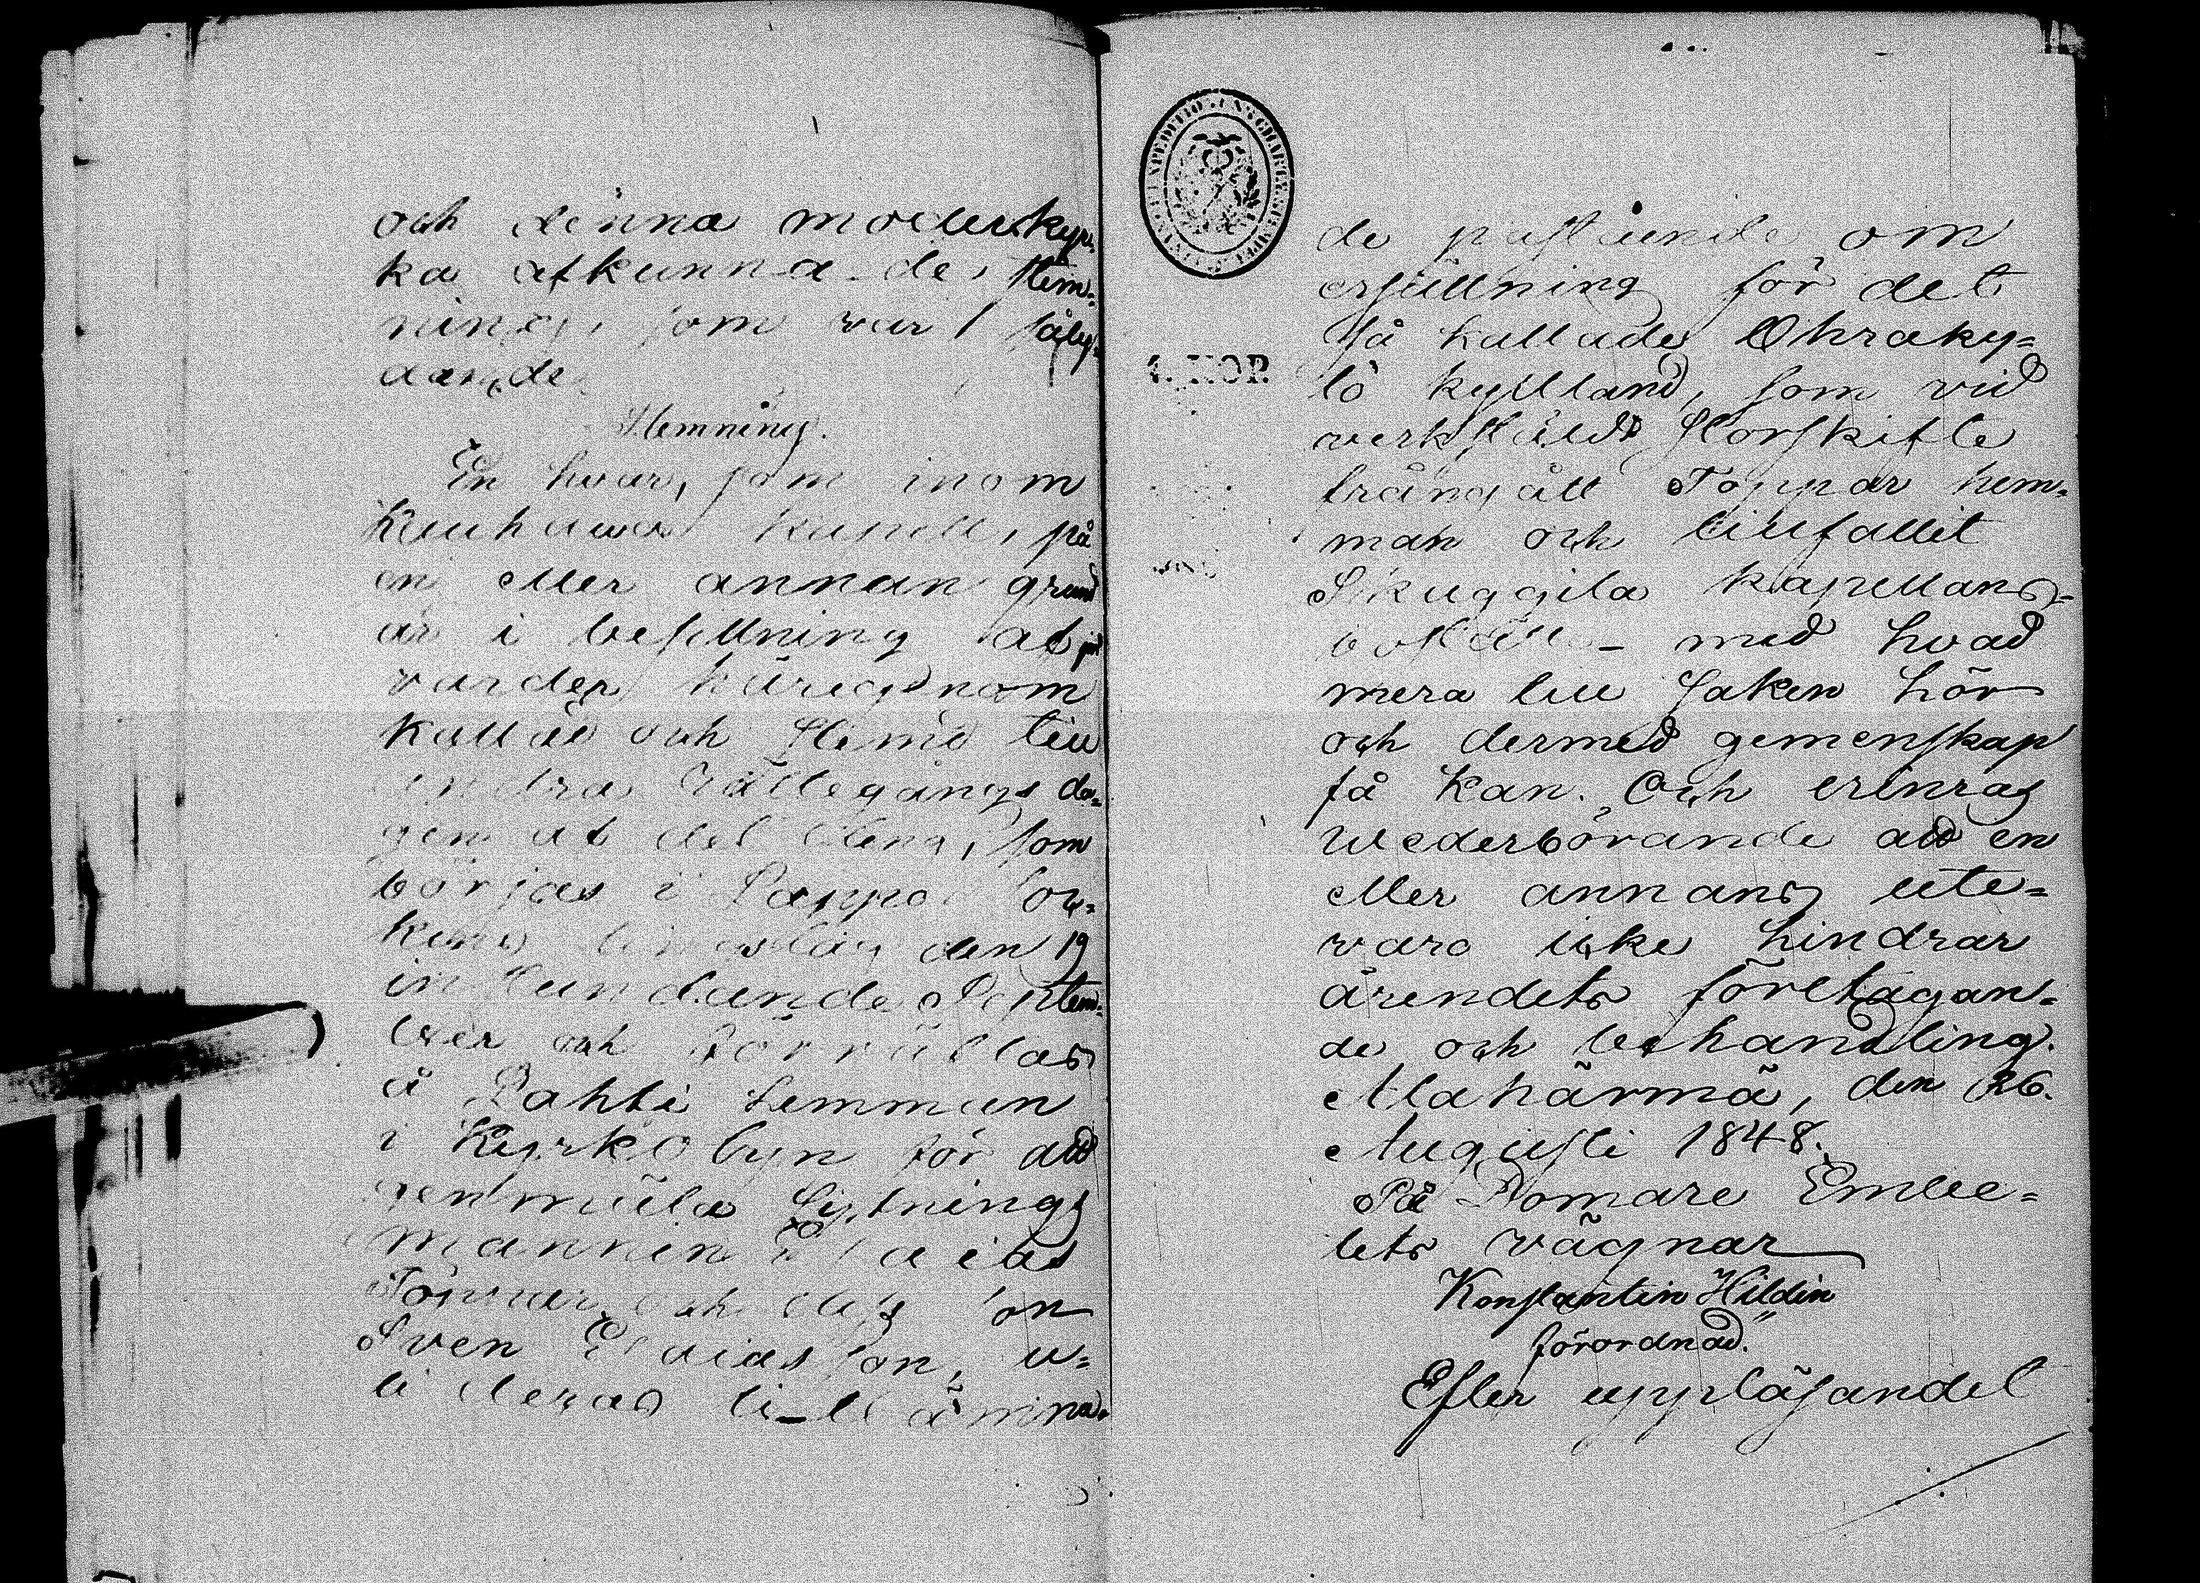 och denna moderkyr=
ka afkunnade Stem=
ning, som var såly=
dande
Stemning.
En hvar, som inom
Kauhava kapell, på
en eller annan grund
är i besittning af jord
varder härigenom
kallad och stemd till
andra Rättegångsda=
gen af det ting, som
börjas i Lappo Soc=
kens tingslag den 19
instundande Septem=
ber och förrättas
å Lahti hemman
i Kyrkobyn för att
genmäla Gästnings
mannen Esaias
Töppär och dess son
Sven Esaiasson, u=
ti deras tillämna=
de påstående om
ersättning för det
så kallade Ohraky=
tö kyttland, som vid
verkstäldt Storskifte
frångått Töppär hem=
man och tillfallit
Skuggila kapellans=
boställe med hvad
mera till saken hör
och dermed gemenskap
få kan. Och erinras
wederbörande att en
eller annans ute=
varo icke hindrar
ärendets företagan=
de och behandling.
Alahärmä, den 26.
Augusti 1848.
På Domare Embe=
tets vägnar
Konstantin Hildin
förordnad.
Efter uppläsandet
4. KOP.